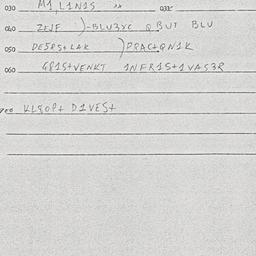 030 M1,L1N1S 033c
040 ZEJF )-BLU3YC QBUT BLU
050 DE5RS+LAK )PRAC+QN1K
060 G81S+VENKT 1NFR1S+1VAS3R
KL8OP+ D1VES+